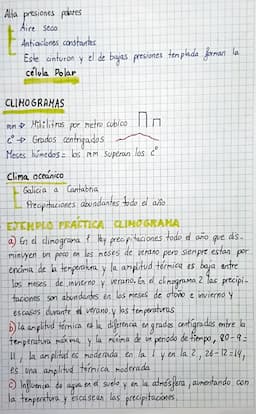 Alta presiones polares
Aire seco
Anticiclones constantes
Este cinturon y el de bajas presiones templada forman la
célula Polar
CLIMOGRAMAS
mm → Mililitros por metro cúbico
Cº → Grados centígrados
Meses húmedos = los mm superan los cº
Clima oceánico
Galicia a Cantabria
Precipitaciones abundantes todo el año
EJEMPLO PRÁCTICA CLIMOGRAMA
a) En el climograma 1 hay precipitaciones todo el año que dis-
minuyen un poco en los meses de verano pero siempre estan por
encima de la temperatura y la amplitud térmica es baja entre
los meses de invierno y verano. En el climograma 2 las precipi-
taciones son abundantes en los meses de otoño e invierno y
escasos durante el verano y las temperaturas
b) La amplitud térmica es la diferencia en grados centígrados entre la
temperatura máxima y la mínima de un periodo de tiempo, 20-9=
11, la amplitud es moderada en la 1 y en la 2, 26-12=14,
es una amplitud térmica moderada
c) Influencia de agua en el suelo y en la atmósfera, aumentando con
la temperatura y escasean las precipitaciones.